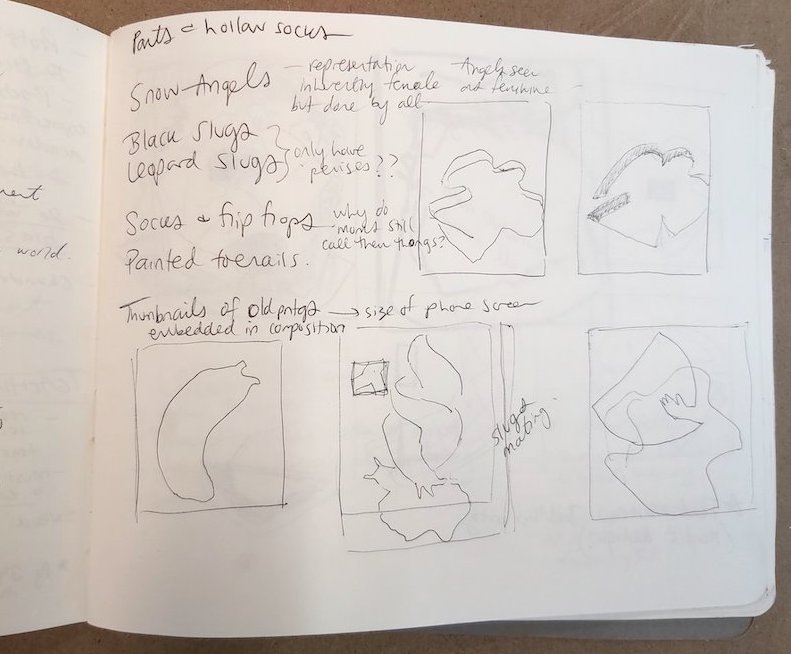 Pants = hollow socks
Snow Angels - representation
inherently female
but done by all
Angels seen
as feminine
Black slugs
Leopard slugs
only have
penises??
Socks & flip flops
why do
moms still
call them thongs?
Painted toenails.
Thumbnails of old pntgs → size of phone screen
embedded in composition
slugs
mating.
world.